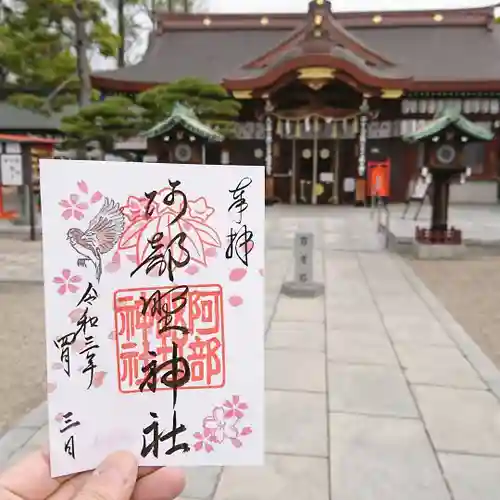 奉拝
阿部野神社
阿部
野
神社
令和三年
四月
三日